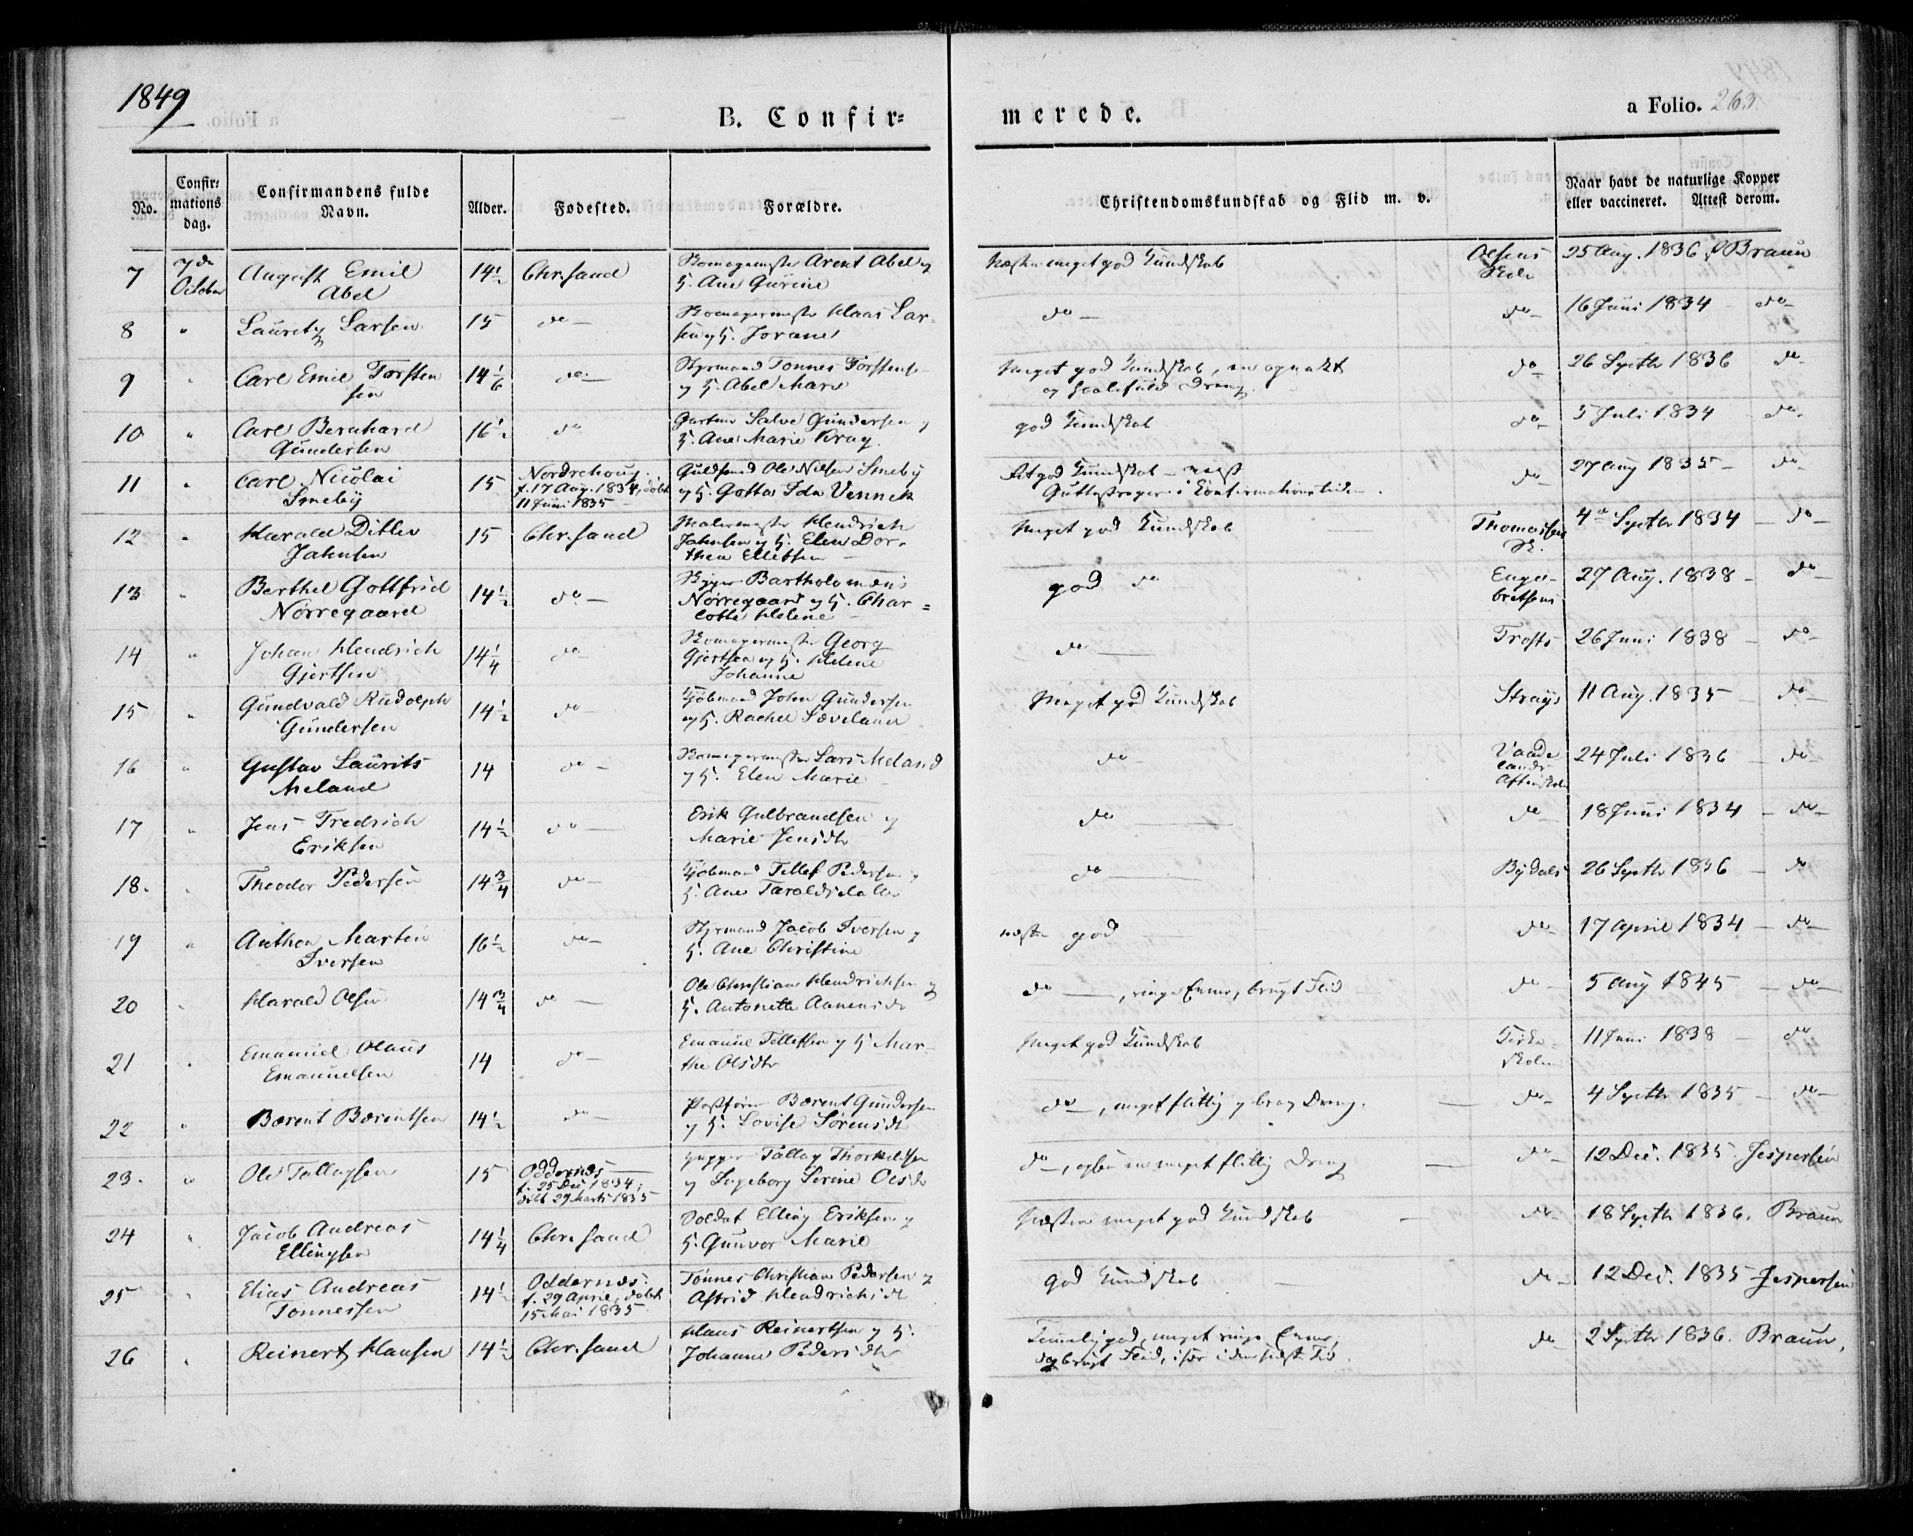 1849
B. Confir=
merede.
a Folio. 263.
No. | Confir=mations dag. | Confirmandens fulde Navn. | Alder. | Fødested. | Forældre. | Christendomskundskab og Flid m. v. | Naar havt de naturlige Kopper eller vaccineret. Attest derom.
7 | 7de October | August Emil Abel | 14½ | Chr.sand | Arent Abel og H. Ane Gurine | Næsten meget god Kundskab | Olsens Skole | 25 Aug. 1836 Braun
8 | " | Lauritz Larsen | 15 | do | Klaas Larsen og H. Jorane | do | do | 16 Juni 1834 do
9 | " | Carl Emil Torstensen | 14 1/6 | do | Styrmand Tønnes Torstensen og H. Abel Marie | Meget god Kundskab, en opvakt og Dreng | do | 26 Septbr 1836 do
10 | " | Carl Bernhard Gundersen | 16½ | do | Salve Gundersen og H. Ane Marie Krag | god Kundskab | do | 5 Juli 1834 do
11 | " | Carl Nicolai Smeby | 15 | Nordrehoug f. 17 Aug. 1834, døbt 11 Juni 1835 | Guldsmed Ole Nilsen Smeby og H. Ida Vennek | god Kundskab i Confirmationstiden | do | 27 Aug 1835 do
12 | " | Harald Ditlev Jahnsen | 15 | Chr.sand | Malermester Hendrich Jahnsen og H. Elen Dorthea Ellefsen | Meget god Kundskab | Thomassens Sk. | 4de Septbr 1834 do
13 | " | Berthel Gottfrid Nørregaard | 14½ | do | Bartholomæus Nørregaard og H. Charlotte Helene | god do | Engebretsens | 27 Aug. 1838 do
14 | " | Johan Hendrich Gjertsen | 14¼ | do | Georg Gjertsen og H. Helene Johanne | do | Trosts | 26 Juni 1838 do
15 | " | Gundvald Rudolph Gundersen | 14½ | do | Kjøbmand John Gundersen og H. Rachel Sæveland | Meget god Kundskab | Strays | 11 Aug. 1835 do
16 | " | Gustav Laurits Meland | 14 | do | Lars Meland og H. Elen Marie | do | Vaadelands Aftenskole | 24 Juli 1836 do
17 | " | Jens Fredrich Eriksen | 14½ | do | Erik Gulbrandsen og Marie Jensdtr | do | do | 18 Juni 1834 do
18. | " | Theodor Pedersen | 14¾ | do | Kjøbmand Tellef Pedersen og H. Ane Taraldsdatter | do | Bydals | 26 Septbr 1836 do
19 | " | Anthon Martin Iversen | 16½ | do | Styrmand Jacob Iversen og H. Ane Christine | næsten god | do | 17 April 1834 do
20 | " | Harald Olsen | 14¾ | do | Ole Christian Hendrichsen og H. Antonette Aanensdtr | do, ringe Evner, brugt Flid | do | 5 Aug 1845 do
21 | " | Emanuel Olaus Emanuelsen | 14 | do | Emanuel Tellefsen og H. Marthe Olsdtr | Meget god Kundskab | Kirkeskolen | 11 Juni 1838 do
22 | " | Børent Børentsen | 14½ | do | Børent Gundersen og H. Lovise Sørensdtr | do, meget flittig og brav Dreng. | do | 4 Septbr 1835 do
23. | " | Ole Tallagsen | 15 | Oddernes f. 25 Dec 1834, døbt 29 Marts 1835 | Tallag Thorkildsen og Ingeborg Serine Olsdtr | do, ogsaa en meget flittig Dreng | do | 12 Dec. 1835 Jespersen
24 | " | Jacob Andreas Ellingsen | 14¼ | Chr.sand | Soldat Elling Eriksen og H. Gunvor Marie | Næsten meget god Kundskab | do | 18 Septbr 1836. Braun
25 | " | Elias Andreas Tønnessen | 14½ | Oddernes f. 29 April, døbt 15 Mai 1835 | Tønnes Christian Pedersen og Astrid Hendrichsdtr | god Kundskab | do | 12 Dec. 1835 Jespersen
26 | " | Reinert Hansen | 14½ | Chr.sand | Hans Reinertsen og H. Johanne Pedersdtr | Temmelig god, meget ringe Evner, dog brugt Flid, især i den sidste Tid. | do | 2 Septbr 1836. Braun.